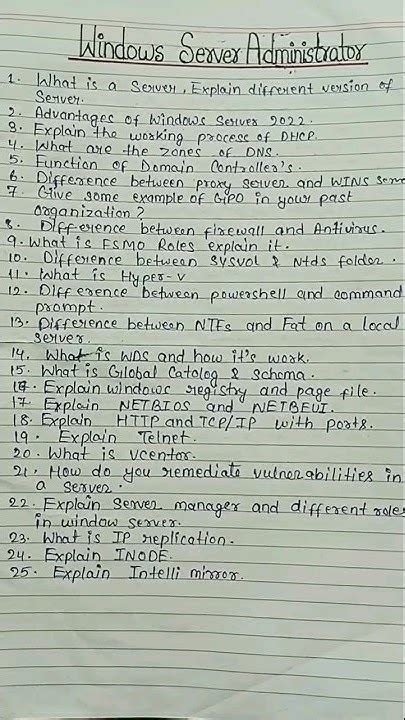 Windows Server Administrator
1. What is a Server, Explain different version of
Server.
2. Advantages of Windows Server 2022.
3. Explain the working process of DHCP.
4. What are the zones of DNS.
5. Function of Domain Controller's.
6. Difference between proxy server and WINS serve
7. Give some example of GPO in your past
organization?
8. Difference between firewall and Antivirus.
9. What is FSMO Roles explain it.
10. Difference between sysvol & Ntds folder.
11. What is Hyper-v
12. Difference between powershell and command
prompt.
13. Difference between NTFs and Fat on a local
server.
14. What is WDS and how it's work.
15. What is Global Catalog & Schema.
16. Explain windows registry and page file.
17. Explain NETBIOS and NETBEUI.
18. Explain HTTP and TCP/IP with ports.
19. Explain Telnet.
20. What is vcentor.
21. How do you remediate vulnerabilities in
a server.
22. Explain Server manager and different roles
in window server.
23. What is IP replication.
24. Explain INODE.
25. Explain Intelli mirror.